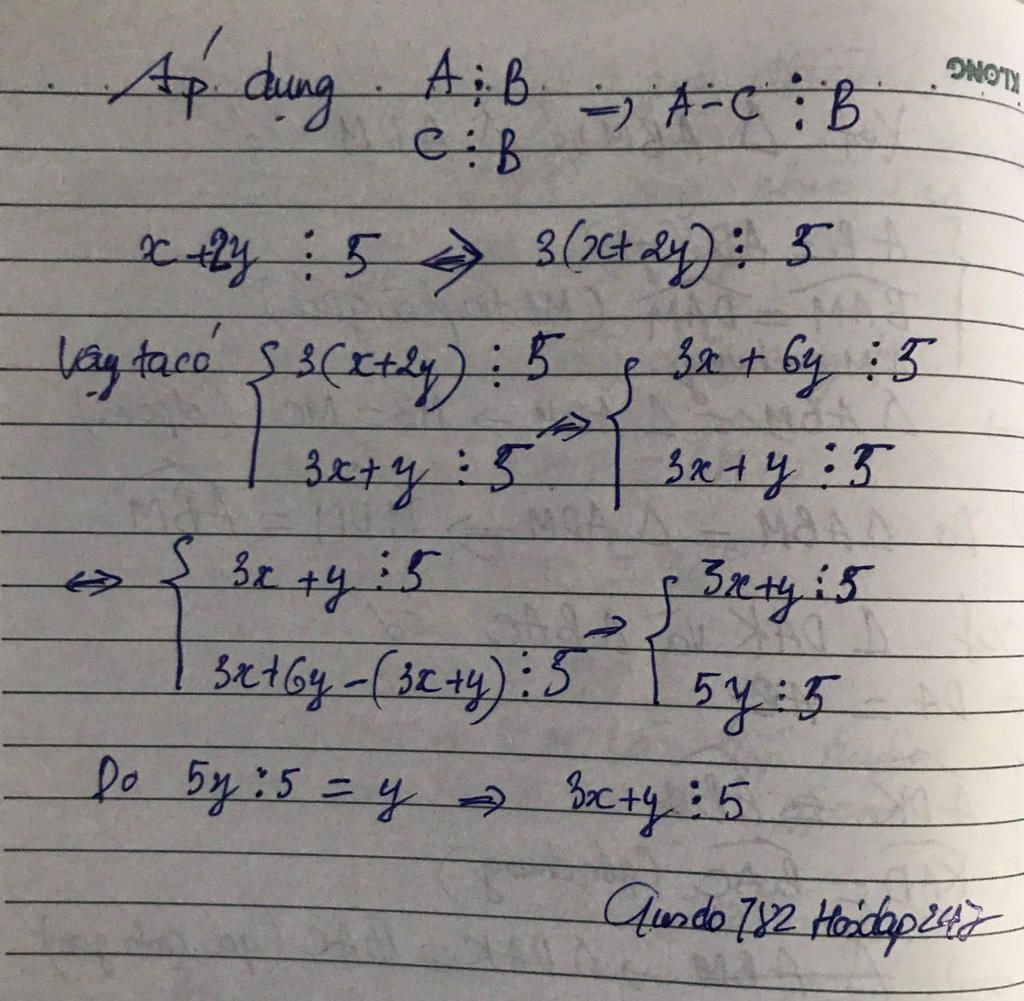 Áp dụng A ⋮ B => A - C ⋮ B
C ⋮ B
x + 2y ⋮ 5 <=> 3(x + 2y) ⋮ 5
Vậy ta có { 3(x + 2y) ⋮ 5 <=> { 3x + 6y ⋮ 5
3x + y ⋮ 5 3x + y ⋮ 5
<=> { 3x + y ⋮ 5 => { 3x + y ⋮ 5
3x + 6y - (3x + y) ⋮ 5 5y ⋮ 5
Do 5y : 5 = y => 3x + y ⋮ 5
782 Hoidap247
KLONG